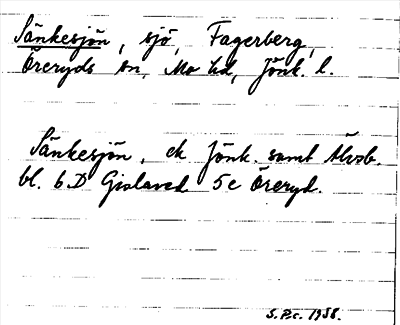 Sänkesjön, sjö, Fagerberg,
Öreryds sn, Mo hd, Jönk. l.
Sänkesjön, ek Jönk. samt Älvsb.
bl. 6.D Gislaved 5c Öreryd.
1958.